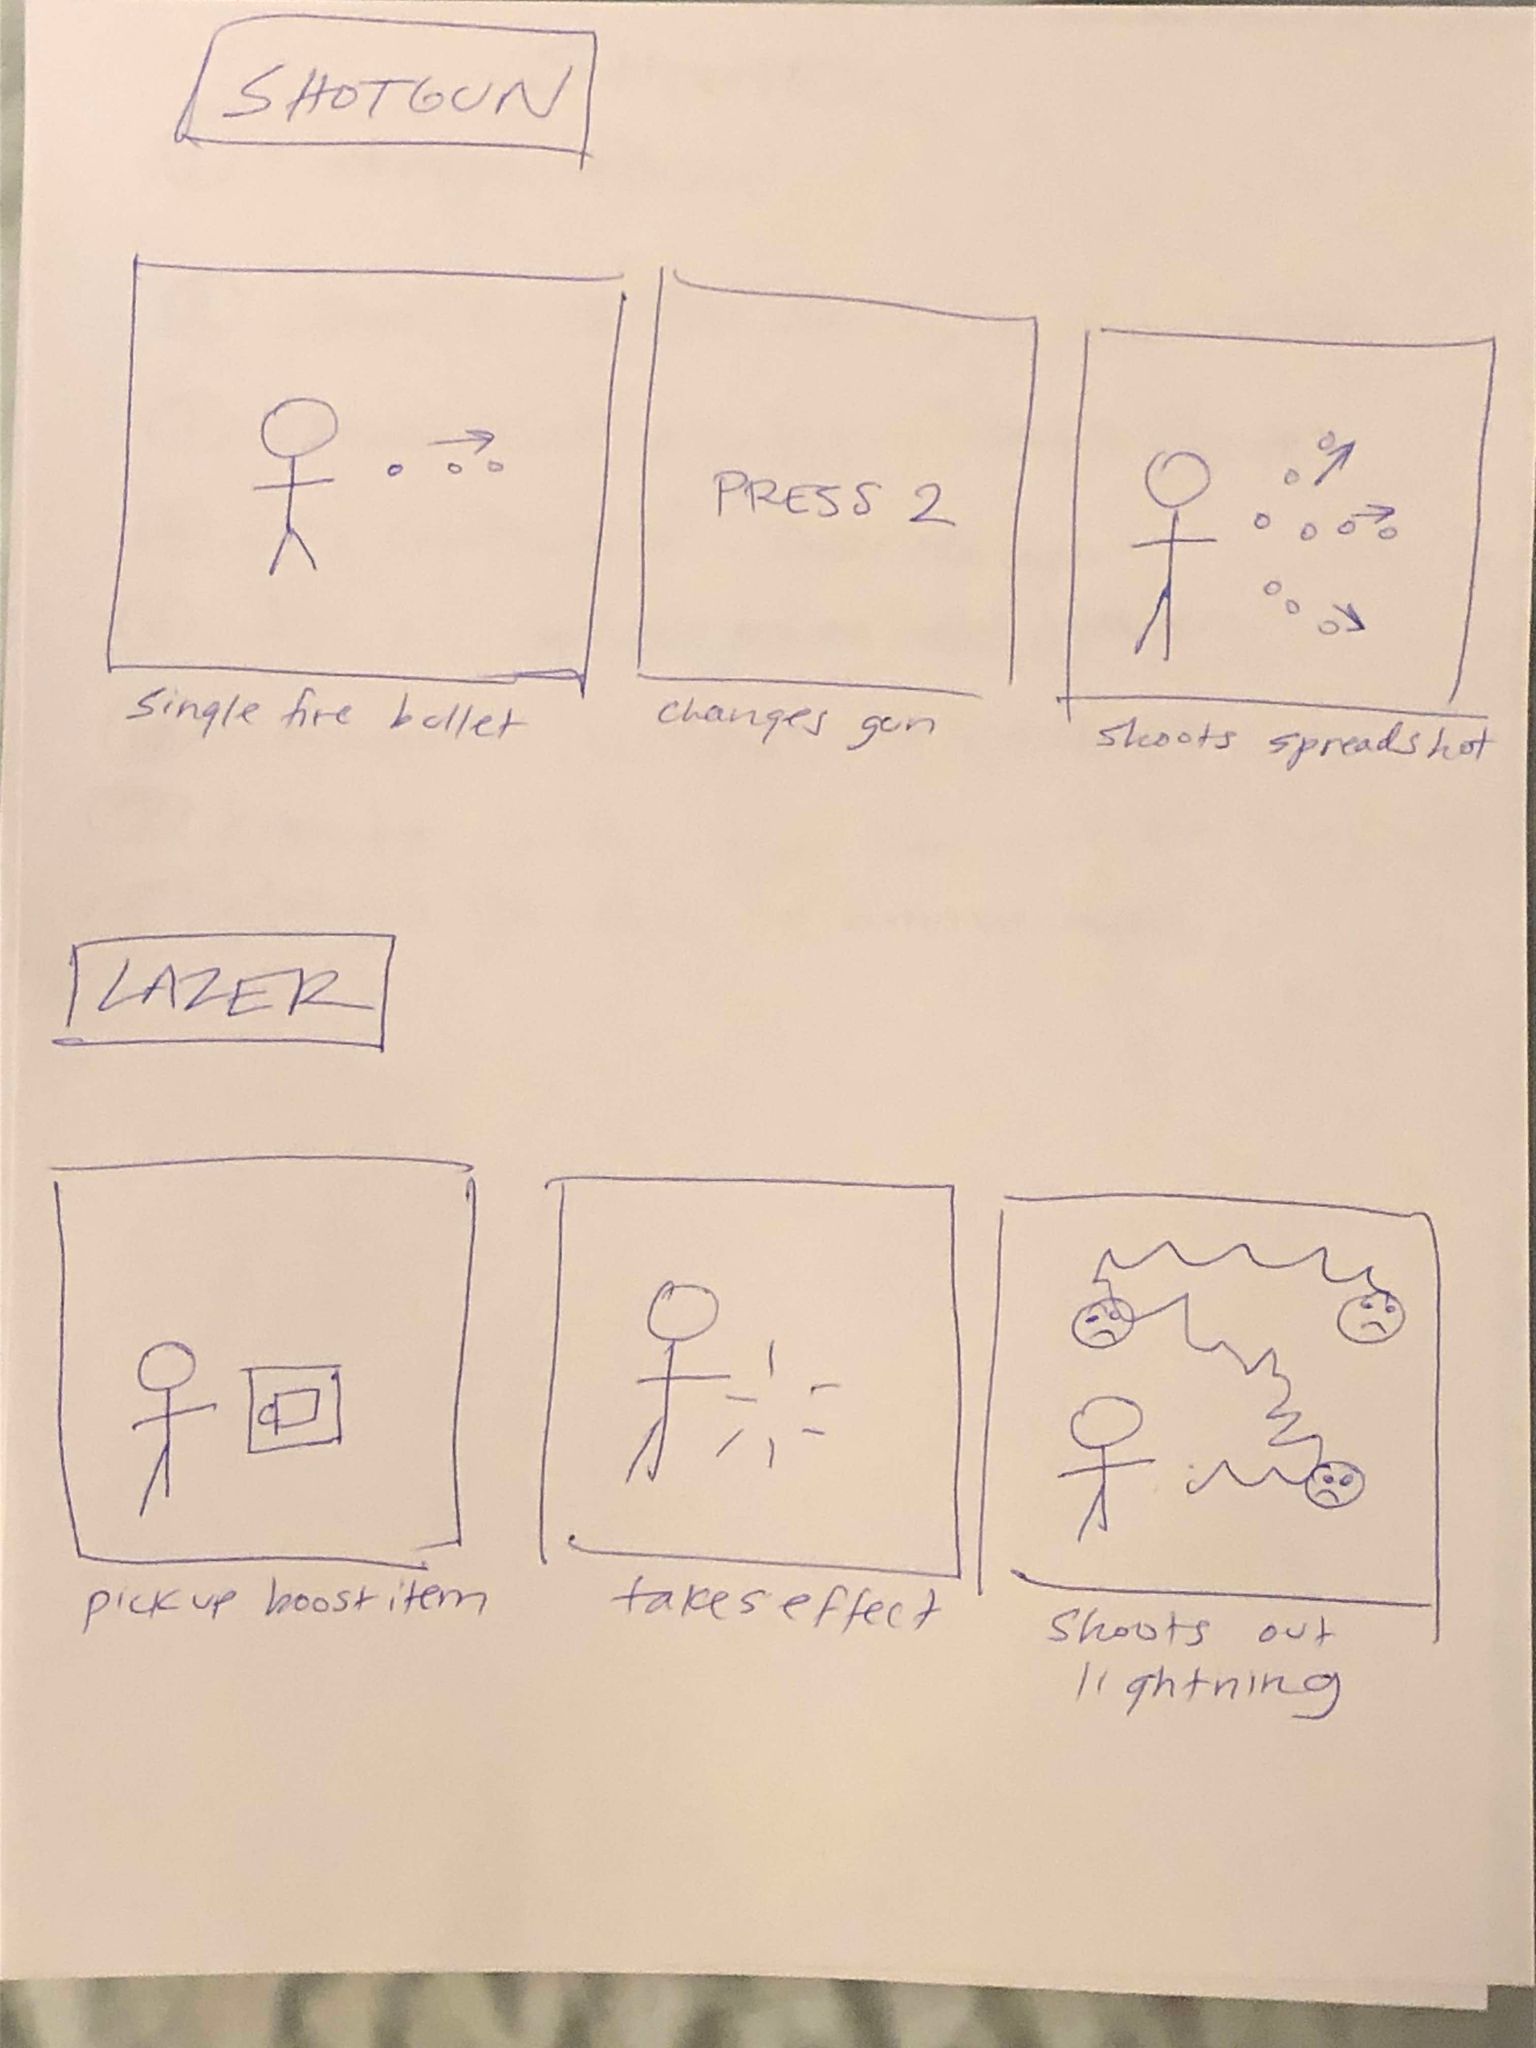 SHOTGUN
PRESS 2
single fire bullet
changes gun
shoots spreadshot
LAZER
pick up boost item
takes effect
shoots out
lightning